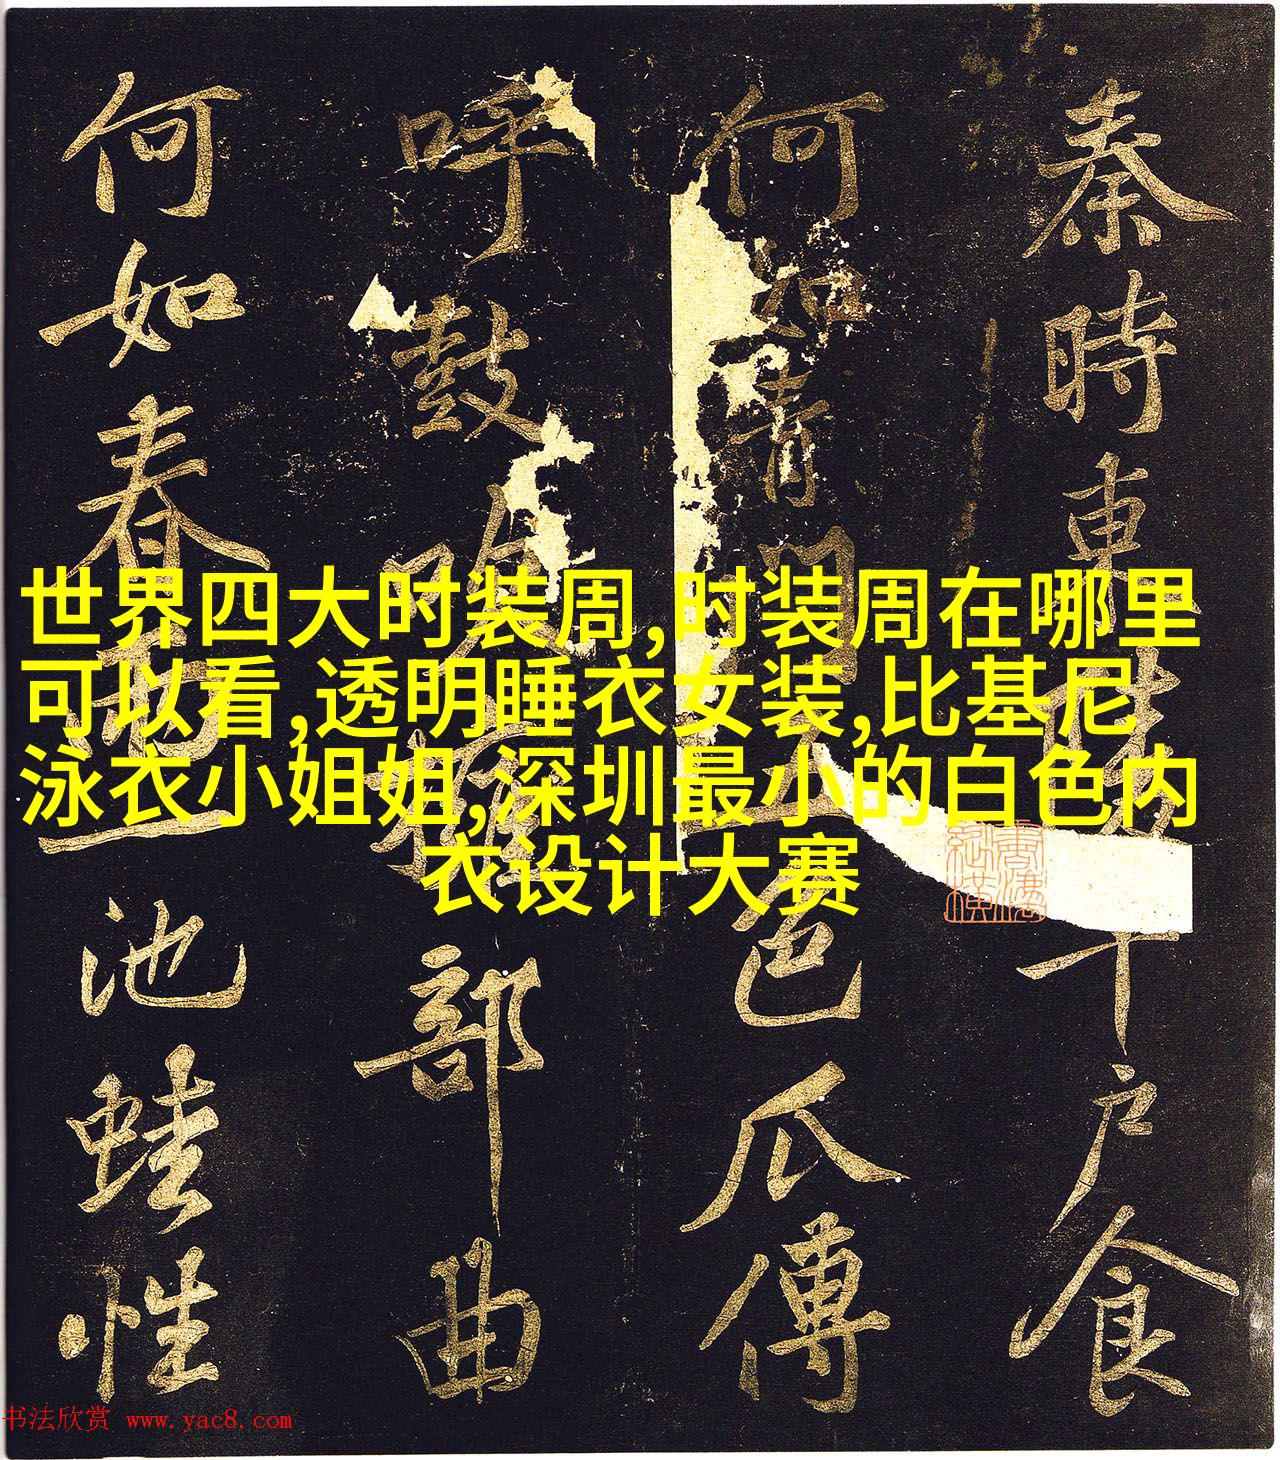 秦時東陵千戶食
何如青門五色瓜傳
呼鼓吹擁部曲
何如春雨池蛙性
世界四大时装周,时装周在哪里
可以看,透明睡衣女装,比基尼
泳衣小姐姐,深圳最小的白色内
衣设计大赛
书法欣赏 www.yac8.com